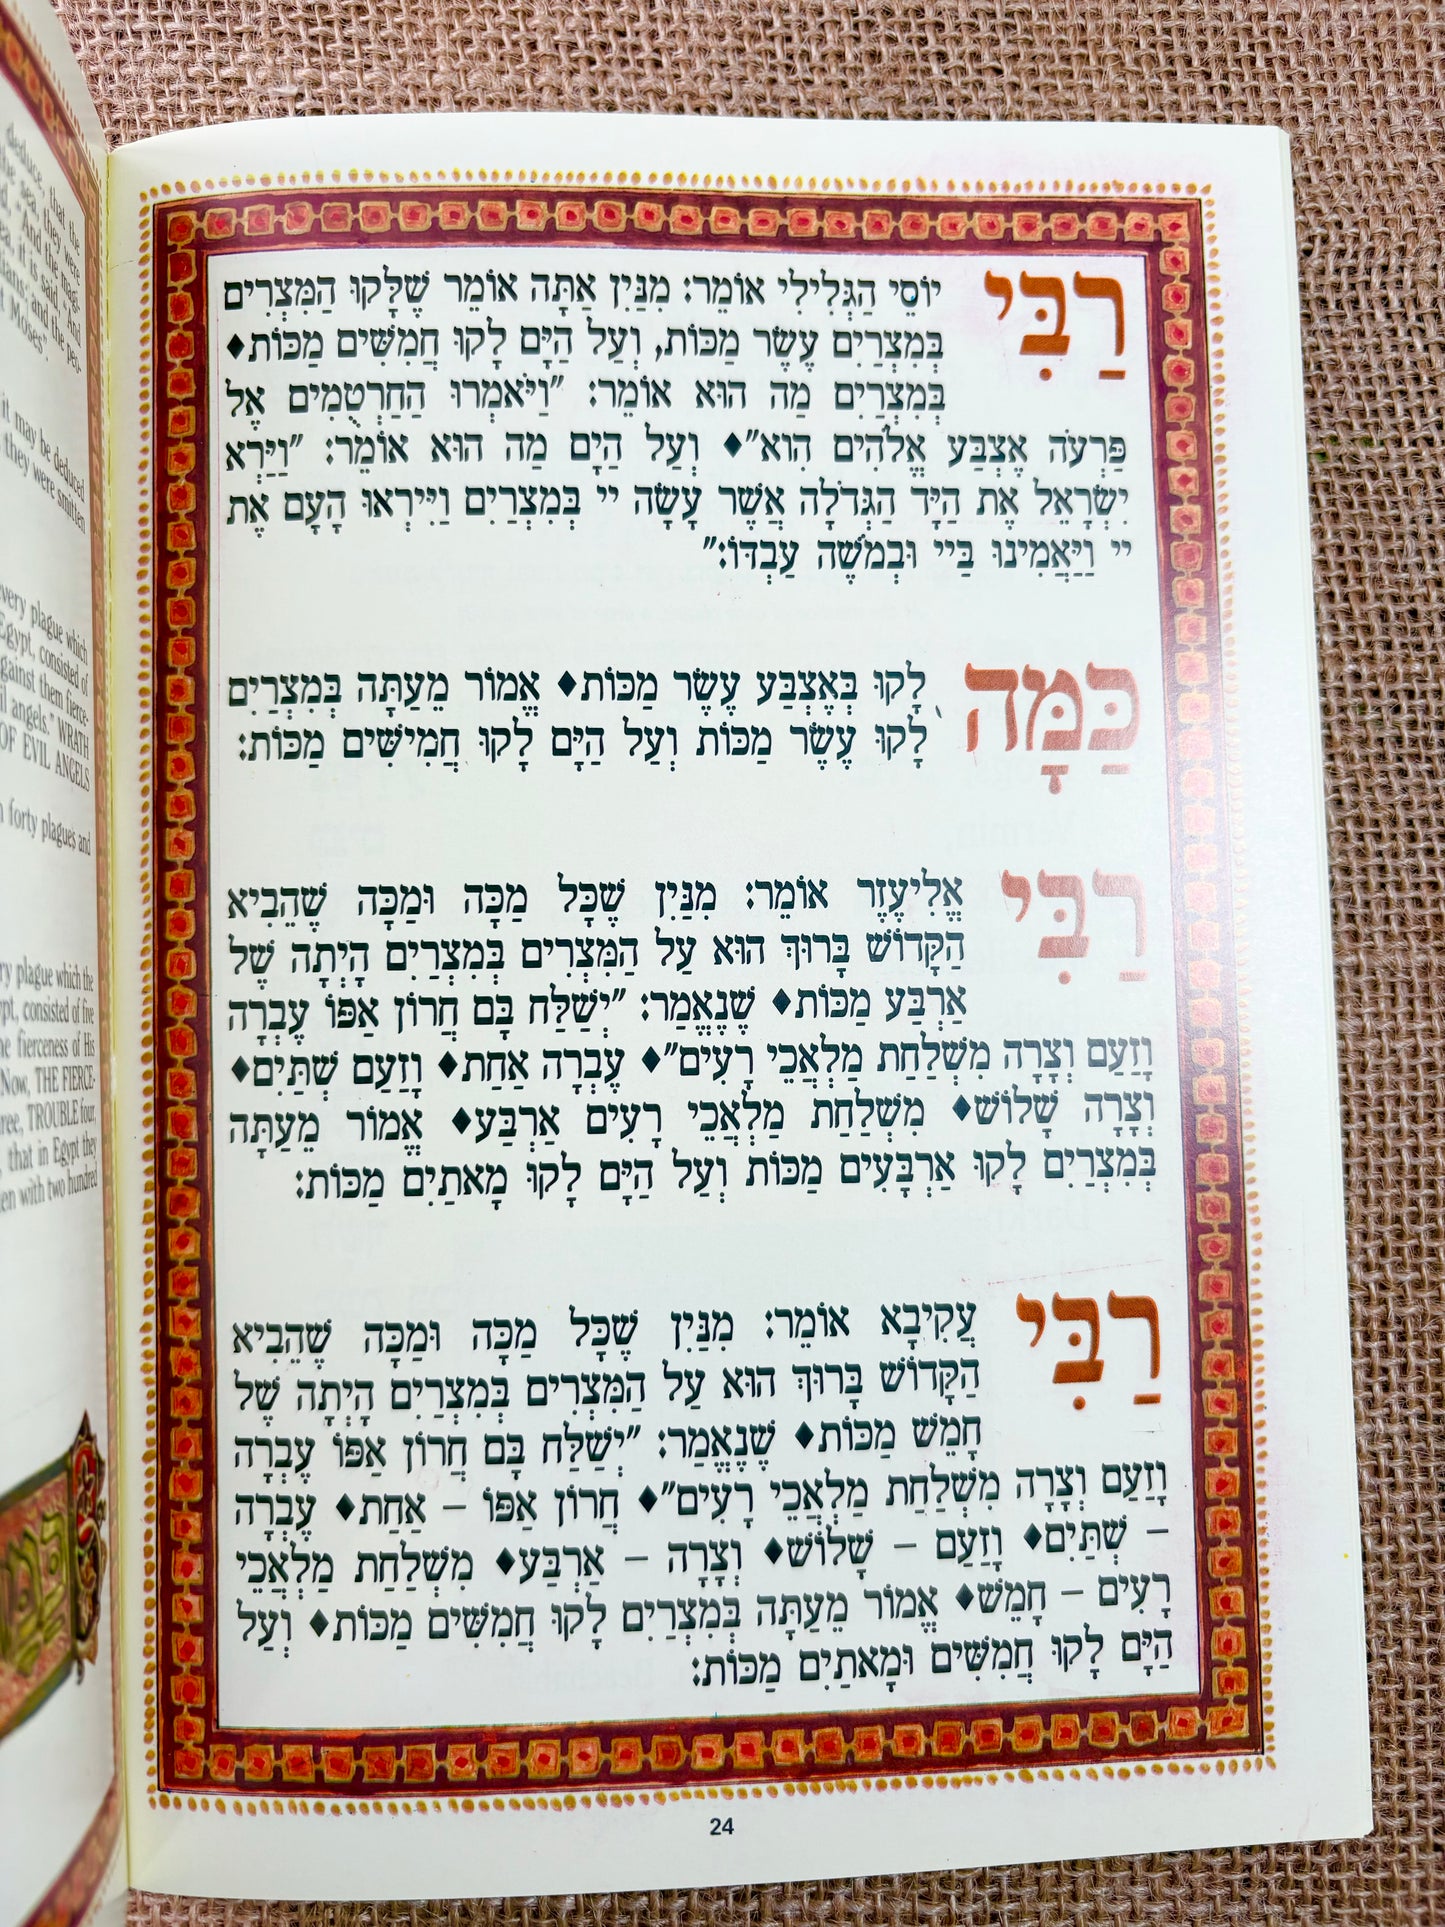 רַבִּי יוֹסֵי הַגְּלִילִי אוֹמֵר: מִנַּיִן אַתָּה אוֹמֵר שֶׁלָּקוּ הַמִּצְרִים
בְּמִצְרַיִם עֶשֶׂר מַכּוֹת, וְעַל הַיָּם לָקוּ חֲמִשִּׁים מַכּוֹת♦
בְּמִצְרַיִם מַה הוּא אוֹמֵר: "וַיֹּאמְרוּ הַחַרְטֻמִּים אֶל
פַּרְעֹה אֶצְבַּע אֱלֹהִים הִוא"♦ וְעַל הַיָּם מַה הוּא אוֹמֵר: "וַיַּרְא
יִשְׂרָאֵל אֶת הַיָּד הַגְּדֹלָה אֲשֶׁר עָשָׂה יי בְּמִצְרַיִם וַיִּירְאוּ הָעָם אֶת
יי וַיַּאֲמִינוּ בַּיי וּבְמֹשֶׁה עַבְדּוֹ:"
כַּמָּה לָקוּ בְּאֶצְבַּע עֶשֶׂר מַכּוֹת♦ אֱמוֹר מֵעַתָּה בְּמִצְרַיִם
לָקוּ עֶשֶׂר מַכּוֹת וְעַל הַיָּם לָקוּ חֲמִישִּׁים מַכּוֹת:
רַבִּי אֱלִיעֶזֶר אוֹמֵר: מִנַּיִן שֶׁכָּל מַכָּה וּמַכָּה שֶׁהֵבִיא
הַקָּדוֹשׁ בָּרוּךְ הוּא עַל הַמִּצְרִים בְּמִצְרַיִם הָיְתָה שֶׁל
אַרְבַּע מַכּוֹת♦ שֶׁנֶּאֱמַר: "יְשַׁלַּח בָּם חֲרוֹן אַפּוֹ עֶבְרָה
וָזַעַם וְצָרָה מִשְׁלַחַת מַלְאֲכֵי רָעִים"♦ עֶבְרָה אַחַת♦ וָזַעַם שְׁתַּיִם♦
וְצָרָה שָׁלוֹשׁ♦ מִשְׁלַחַת מַלְאֲכֵי רָעִים אַרְבַּע♦ אֱמוֹר מֵעַתָּה
בְּמִצְרַיִם לָקוּ אַרְבָּעִים מַכּוֹת וְעַל הַיָּם לָקוּ מָאתַיִם מַכּוֹת:
רַבִּי עֲקִיבָא אוֹמֵר: מִנַּיִן שֶׁכָּל מַכָּה וּמַכָּה שֶׁהֵבִיא
הַקָּדוֹשׁ בָּרוּךְ הוּא עַל הַמִּצְרִים בְּמִצְרַיִם הָיְתָה שֶׁל
חָמֵשׁ מַכּוֹת♦ שֶׁנֶּאֱמַר: "יְשַׁלַּח בָּם חֲרוֹן אַפּוֹ עֶבְרָה
וָזַעַם וְצָרָה מִשְׁלַחַת מַלְאֲכֵי רָעִים"♦ חֲרוֹן אַפּוֹ – אַחַת♦ עֶבְרָה
– שְׁתַּיִם♦ וָזַעַם – שָׁלוֹשׁ♦ וְצָרָה – אַרְבַּע♦ מִשְׁלַחַת מַלְאֲכֵי
רָעִים – חָמֵשׁ♦ אֱמוֹר מֵעַתָּה בְּמִצְרַיִם לָקוּ חֲמִשִּׁים מַכּוֹת♦ וְעַל
הַיָּם לָקוּ חֲמִשִּׁים וּמָאתַיִם מַכּוֹת:
24
deduce, that the
the sea, they were
"And the magi-
ea, it is said, "And
and the peo-
Moses".
it may be deduced
they were smitten
every plague which
Egypt, consisted of
against them fierce-
angels." WRATH
OF EVIL ANGELS
forty plagues and
plague which the
consisted of five
the fierceness of His
Now, THE FIERCE-
TROUBLE four,
that in Egypt they
with two hundred